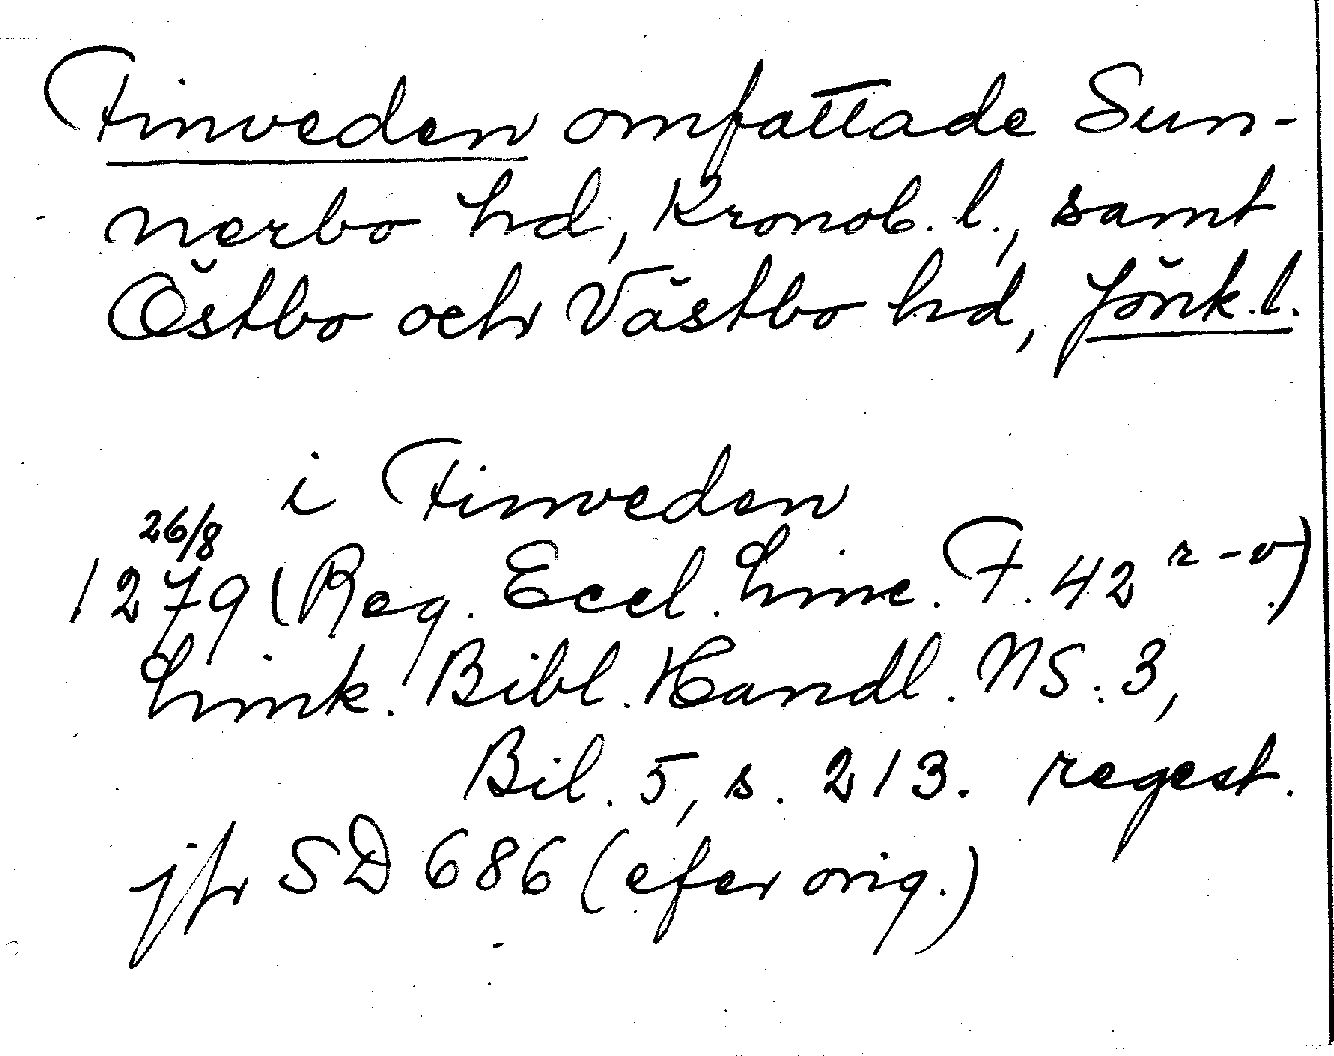 Finveden omfattade Sun-
nerbo hd, Kronob. l., samt
Östbo och Västbo hd, Jönk. l.
i Finveden
26/8
1279 (Reg. Eccl. Linc. F. 42 r-v.)
Link. Bibl. Handl. NS. 3,
Bil. 5, s. 213. regest.
jfr SD 686 (efer orig.)